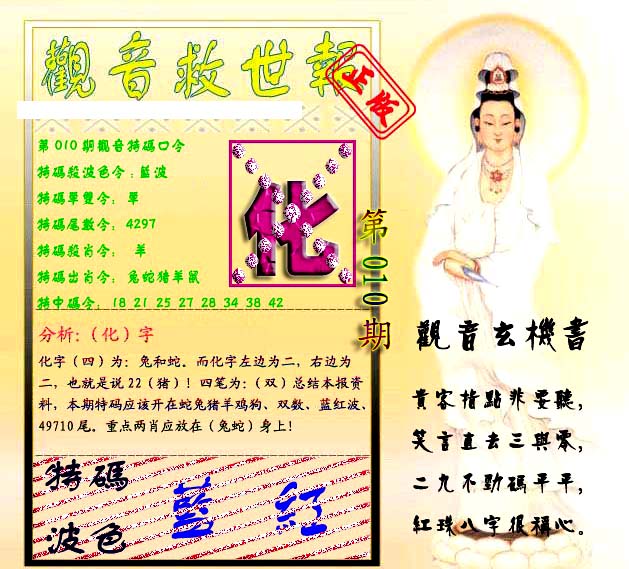 觀音救世報
正版
第010期觀音特碼口令
特碼殺波色令:藍波
特碼單雙令: 單
特碼尾數令: 4297
特碼殺肖令: 羊
特碼出肖令: 兔蛇猪羊鼠
特中碼令: 18 21 25 27 28 34 38 42
化
第010期
分析:(化)字
化字(四)为: 兔和蛇。而化字左边为二, 右边为
二, 也就是说22(猪)! 四笔为:(双)总结本报资
料, 本期特码应该开在蛇兔猪羊鸡狗、双数、蓝红波、
49710尾。重点两肖应放在(兔蛇)身上!
特碼
波色
藍 紅
觀音玄機書
貴客指點非要聽,
笑言直去三與零,
二九不勁碼平平,
紅珠八字很稱心。